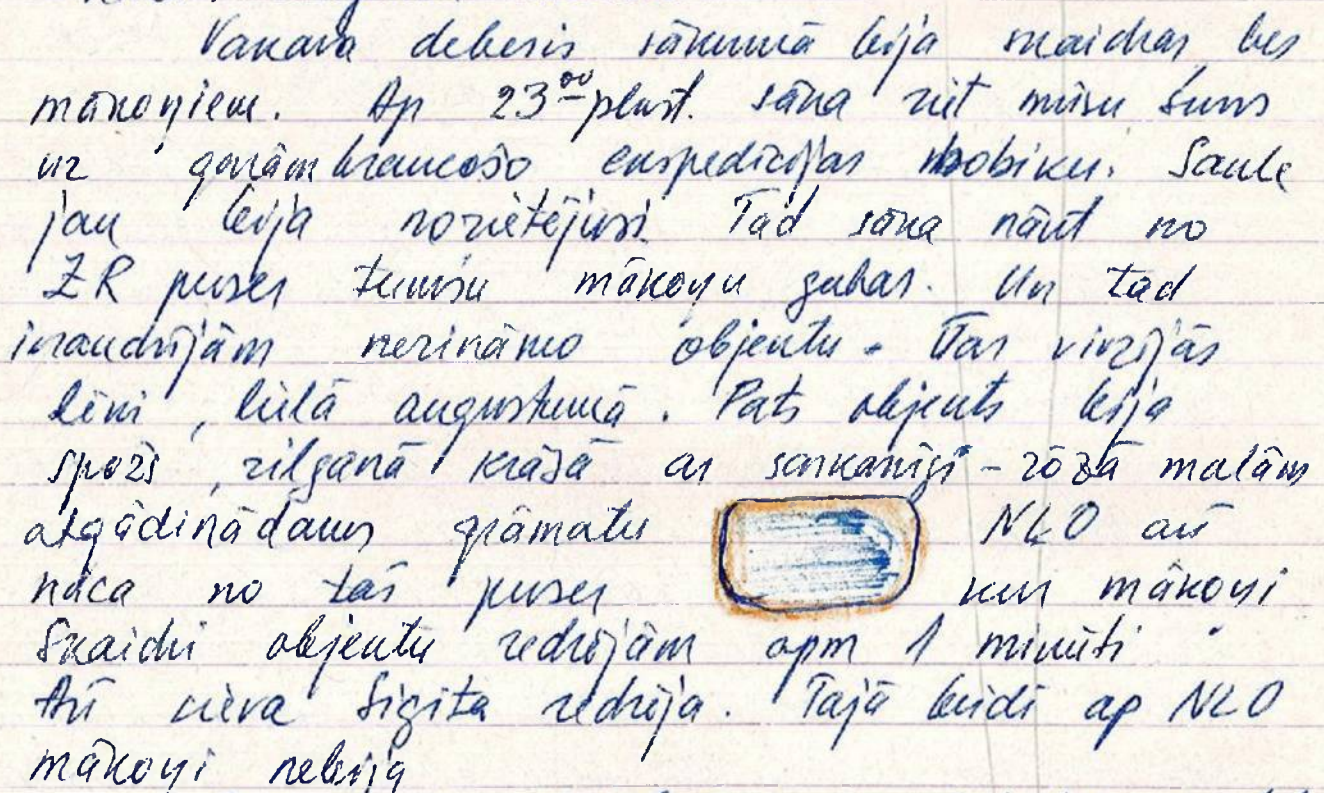 Vakara debesis sākumā bija skaidras bes
mākoņiem. Ap 23⁰⁰ plkst. sāka riet mūsu suns
uz garām braucošo ekspedīcijas bobiku. Saule
jau bija norietējusi. Tad sāka nākt no
ZR puses tumšu mākoņu gubas. Un tad
ieraudzījām nezināmo objektu. Tas virzījās
lēni, lielā augstumā. Pats objekts bija
spožs, zilganā krāsā ar sarkanīgi-rōzā malām
atgādinādams grāmatu NLO arī
nāca no tās puses kur mākoņi
Skaidri objektu redzējām apm 1 minūti.
Arī sieva Sigita redzēja. Tajā brīdī ap NLO
mākoņi nebija